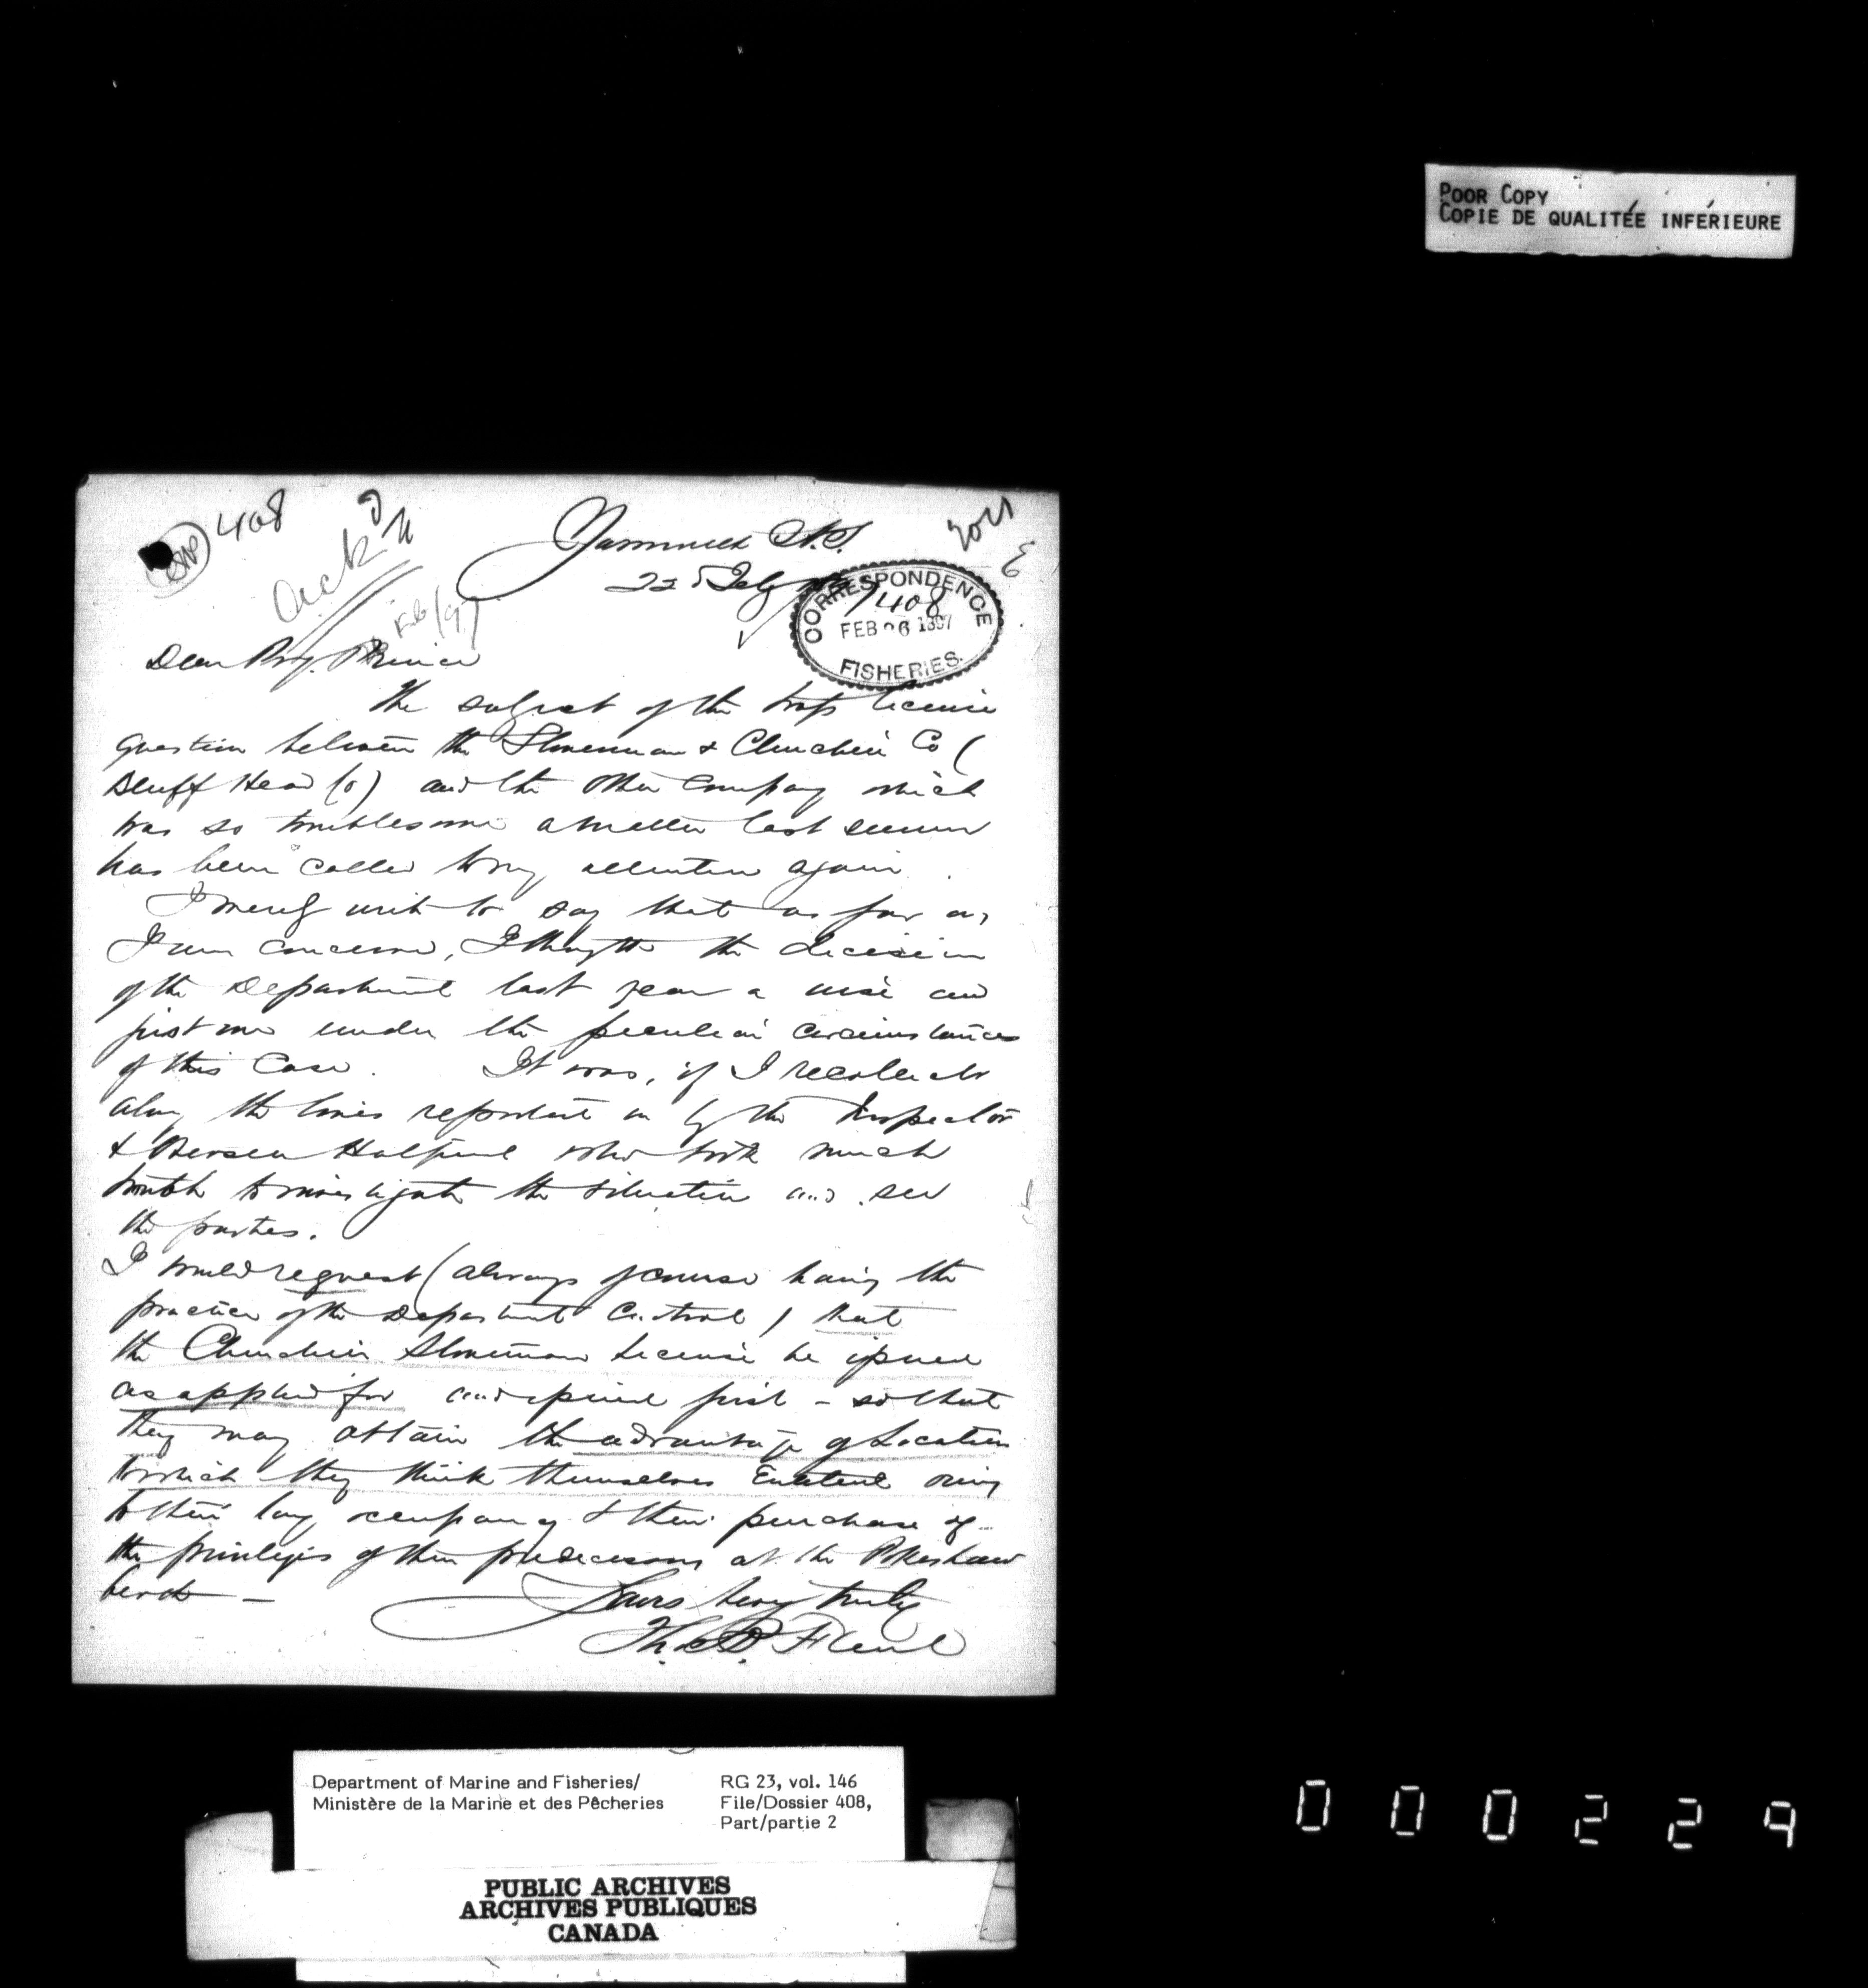 POOR COPY
COPIE DE QUALITÉE INFÉRIEURE
408
Ack
Yarmouth N.S.
22 Feby
CORRESPONDENCE
1408
FEB 26 1897
FISHERIES.
Dear Prof. Prince
The subject of the trap license
question between the & Churchill Co (
Bluff Head Co) and the other Company which
was so troublesome a matter last season
has been called to my attention again
I merely write to say that as far as
I am concerned, I thought the decision
of the Department last year a wise and
just one under the peculiar circumstances
of this Case. It was, if I recollect
along the lines reported on by the Inspector
& Overseer Hatfield who took much
trouble to investigate the situation and see
the parties.
I would request (always of course having the
practice of the Department Control) that
the Churchill License be issued
as applied for and issued first - so that
they may obtain the advantage of Location
to which they think themselves Entitled owing
to their long occupancy & their purchase of
the privileges of their predecessors at the
berth -
Yours very truly
Thos B. Flint
Department of Marine and Fisheries/
Ministère de la Marine et des Pêcheries
RG 23, vol. 146
File/Dossier 408,
Part/partie 2
PUBLIC ARCHIVES
ARCHIVES PUBLIQUES
CANADA
000229